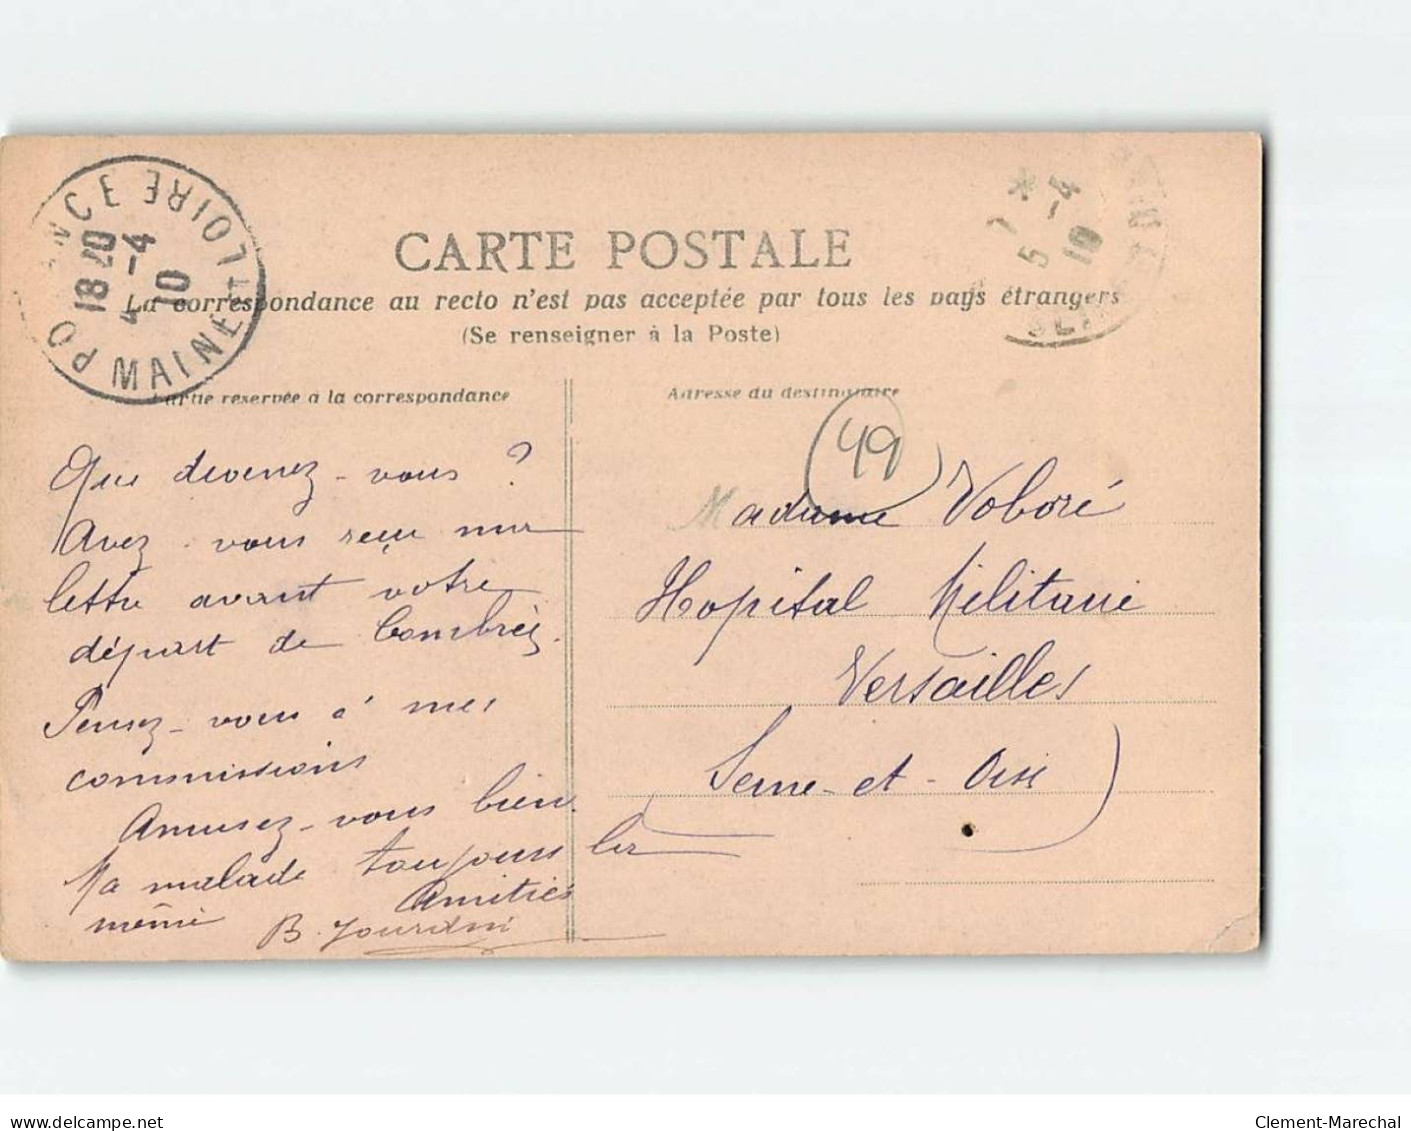 POUANCE
MAINE ET LOIRE
18 20
4 -4
10
*
5 -4
10
CARTE POSTALE
La correspondance au recto n'est pas acceptée par tous les pays étrangers
(Se renseigner à la Poste)
Partie réservée à la correspondance
Adresse du destinataire
49
Que devenez-vous ?
Avez-vous reçu ma
lettre avant votre
départ de Combrée.
Pensez-vous à mes
commissions
Amusez-vous bien.
Ma malade toujours la
même Amitiés
B. Jourdin
Madame Voboré
Hopital Militaire
Versailles
Seine-et-Oise
Clement-Marechal
delcampe.net